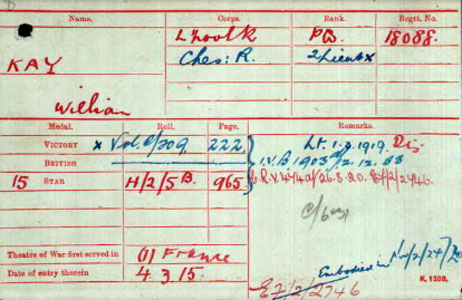 Name. Corps. Rank. Regtl. No.
KAY L'pool R Pte 18088.
Ches: R. 2/Lieut x
William
Medal. Roll. Page. Remarks.
VICTORY x Vol. 222. Lt. 1919.
BRITISH I.V.B. 1903
15 STAR H/2/5 B. 965. 26.3.20. E7/2/2746.
Theatre of War first served in (1) France
Date of entry therein 4.3.15. Embodied
E7/2/2746
K. 1380.